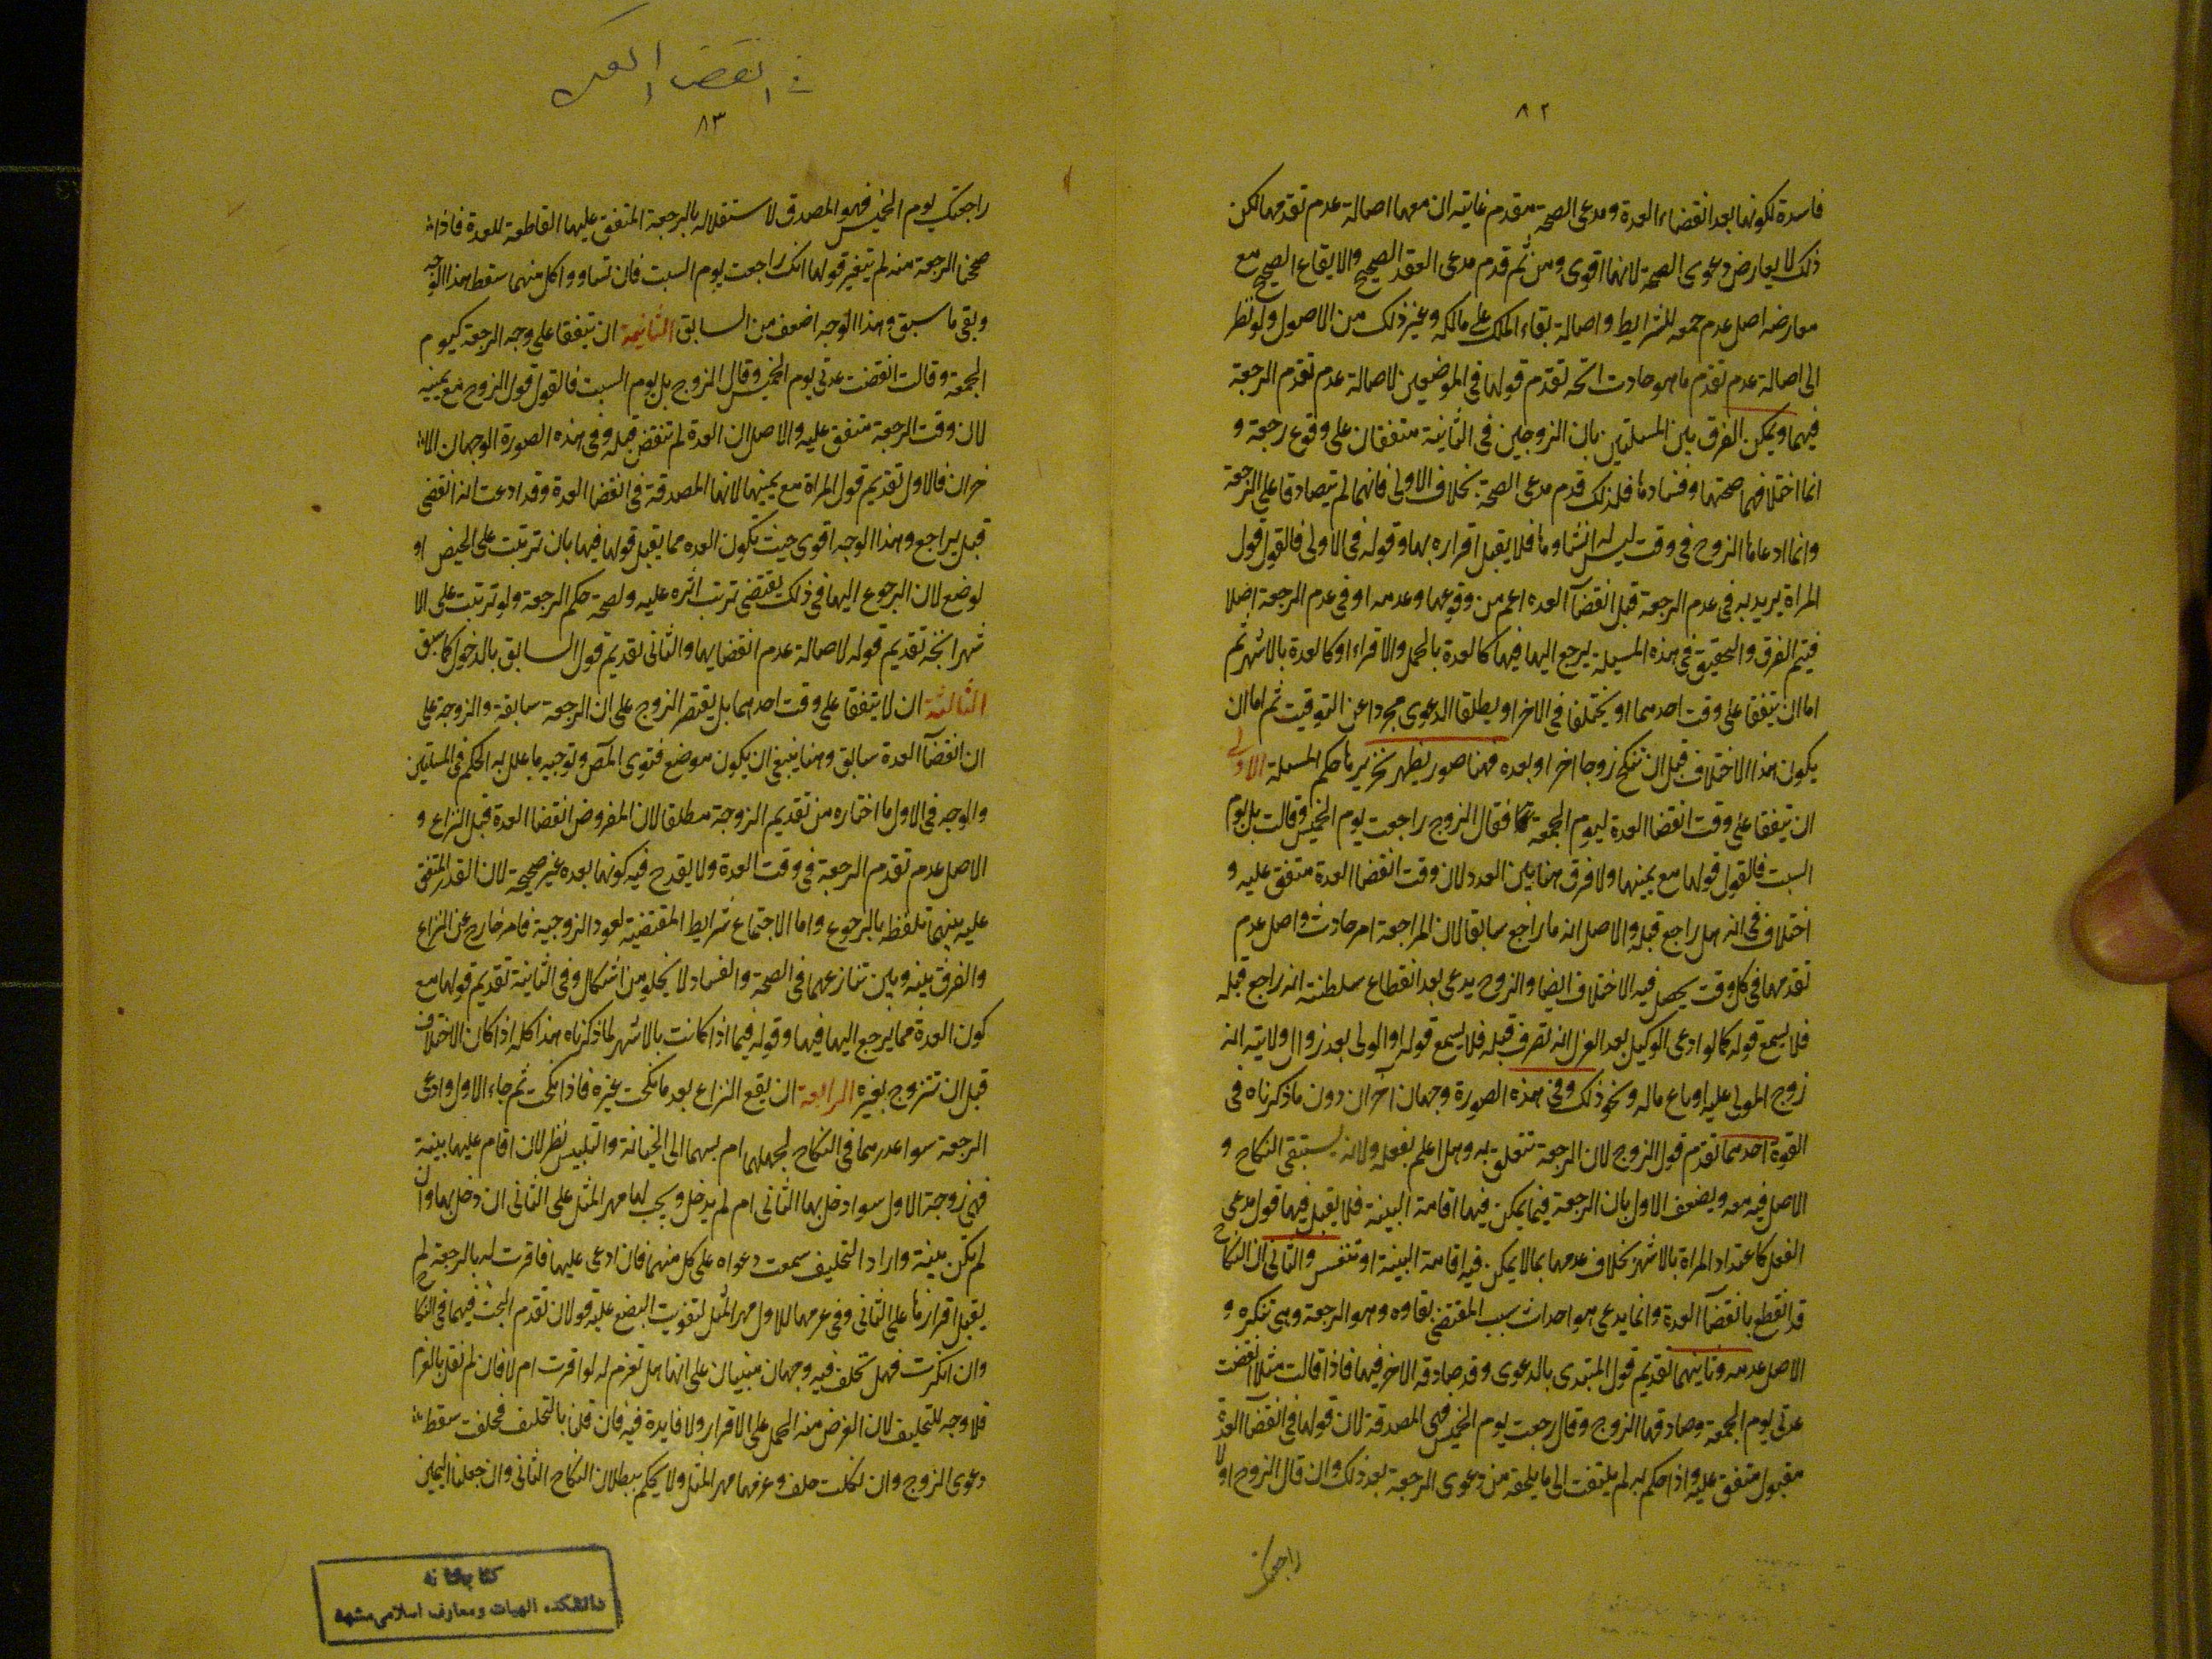 ٨٢
فاسدة لكونها بعد انقضاء العدة ومدعى الصحة مقدم غايته ان معهما اصالة عدم تقدمهما لكن
ذلك لا يعارض دعوى الصحة لانها اقوى ومن ثم قدم مدعى العقد الصحيح والايقاع الصحيح مع
معارضه اصل عدم جمعه للشرايط واصالة بقاء الملك على مالكه وغير ذلك من الاصول ولو نظر
الى اصالة عدم تقدم ما هو حادث اتجه تقدم قولها فى الموضعين لاصالة عدم تقدم الرجعة
فيهما ويمكن الفرق بين المسئلتين بان الزوجين فى الثانية متفقان على وقوع رجعة و
انما اختلافهما صحتها وفسادها فلذلك قدم مدعى الصحة بخلاف الاولى فانهما لم يتصادقا على الرجعة
وانما ادعاها الزوج فى وقت ليس له انشاوها فلا يقبل اقراره بها وقوله فى الاولى فالقول قول
المراة يريد به فى عدم الرجعة قبل انقضآ العده اعم من وقوعها وعدمه او فى عدم الرجعة اصلا
فيتم الفرق والتحقيق فى هذه المسيلة يرجع اليها فيها كالعدة بالحمل والاقراء او كالعدة بالاشهر ثم
اما ان يتفقا على وقت احدهما او يختلفا فى الاخر او يطلقا الدعوى مجردا عن التوقيت ثم اما ان
يكون هذا الاختلاف قبل ان تنكح زوجا اخر او بعده فهنا صور يظهر بتحريرها حكم المسيلة الاولى
ان يتفقا على وقت انقضا العدة ليوم الجمعة فقال الزوج راجعت يوم الخميس وقالت بل يوم
السبت فالقول قولها مع يمينها ولا فرق هنا بين العدد لان وقت انقضا العدة متفق عليه و
اختلاف فى انه هل راجع قبله والاصل انه ما راجع سابقا لان المراجعة امر حادث واصل عدم
تقدمهما فى كل وقت يحصل فيه الاختلاف ايضا والزوج يدعى بعد انقطاع سلطنته انه راجع قبله
فلا يسمع قوله كما لو ادعى الوكيل بعد العزل انه تصرف قبله فلا يسمع قوله او الولى بعد زوال ولايته انه
زوج المولى عليه او باع ماله ونحو ذلك وفى هذه الصورة وجهان آخران دون ما ذكرناه فى
القوة احدهما تقدم قول الزوج لان الرجعة تتعلق به وهل اعلم بفعله ولانه يستبقى النكاح و
الاصل فيه معه ويضعف الاول بان الرجعة فيما يمكن فيها اقامة البينة فلا يقبل فيها قول مدعى
الفعل كاعتداد المراة بالاشهر بخلاف عدمها بما لا يمكن فيه اقامة البينة او تتعسر والثانى ان النكاح
قد انقطع بانقضآ العدة وانما يدعى هو احداث سبب المقتضى بقاوه وهو الرجعة وهى تنكره و
الاصل عدمه وثانيهما تقديم قول المبتدى بالدعوى وقد صادقه الاخر فيها فاذا قالت مثلا انقضت
عدتى يوم الجمعة وصادقها الزوج وقال رجعت يوم الخميس فهى المصدقة لان قولها فى انقضآ العدة
مقبول متفق عليه واذا حكم به لم يلتفت الى ما يلحقه من دعوى الرجعة بعد ذلك وان قال الزوج اولا
راجعتك
فى انقضا العدة
٨٣
راجعتك يوم الخميس فهو المصدق لاستقلاله بالرجعة المتفق عليها القاطعة للعدة فاذا
صحنا الرجعة منه لم يتغير قولها انك راجعت يوم السبت فان تساووا كل منهما سقط هذا الوجه
وبقى ما سبق وهذا الوجه اضعف من السابق الثانية ان يتفقا على وجه الرجعة كيوم
الجمعة وقالت انقضت عدتى يوم الخميس وقال الزوج بل يوم السبت فالقول قول الزوج مع يمينه
لان وقت الرجعة متفق عليه والاصل ان العدة لم تنقض قبله وفى هذه الصورة الوجهان الا
خران فالاول تقديم قول المراة مع يمينها لانها المصدقة فى انقضا العدة وقد ادعت انه انقضى
قبل يراجع وهذا الوجه اقوى حيث يكون العده مما يقبل قولها فيها بان ترتبت على الحيض او
لوضع لان الرجوع اليها فى ذلك يقتضى ترتب اثره عليه ولصحة حكم الرجعة ولو ترتبت على الا
شهر اتجه تقديم قوله لاصالة عدم انقضايها والثانى تقديم قول السابق بالدخول كما سبق
الثالثة ان لا يتفقا على وقت احدهما بل يقتصر الزوج على ان الرجعة سابقة والزوجة على
ان انقضآ العدة سابق وهنا ينبغى ان يكون موضع فتوى المص وتوجيه ما علل به الحكم فى المسئلتين
والوجه فى الاول ما اختاره من تقديم الزوجة مطلقا لان المفروض انقضا العدة قبل النزاع و
الاصل عدم تقدم الرجعة فى وقت العدة ولا يقدح فيه كونها بعده غير صحيحة لان القدر المتفق
عليه بينهما تلفظه بالرجوع واما الاجتماع شرايط المقتضية لعود الزوجية فامر خارج عن النزاع
والفرق بينه وبين تنازعهما فى الصحة والفساد لا يخلو من اشكال وفى الثانية تقديم قولها مع
كون العدة مما يرجع اليها فيها وقوله فيما اذا كانت بالاشهر لما ذكرناه هذا كله اذا كان الاختلاف
قبل ان تتزوج بغيره الرابعة ان يقع النزاع بعد ما نكحت غيره فاذا نكحت ثم جاء الاول وادعى
الرجعة سوا عذرهما فى النكاح لجهلهما ام نسبهما الى الخيانة والتلبيس نظر لان اقام عليها بينة
فهى زوجة الاول سوا دخل بها الثانى ام لم يدخل ويجب لها مهر المثل على الثانى ان دخل بها وان
لم تكن بينة واراد التحليف سمعت دعواه على كل منهما فان ادعى عليها فاقرت له بالرجعة لم
يقبل اقرارها على الثانى وفى غرمها للاول مهر المثل لتفويت البضع عليه قولان تقدم البحث فيهما فى النكاح
وان انكرت فهل تحلف فيه وجهان مبنيان على انها هل تغرم له لو اقرت ام لا فان لم نقل بالغرم
فلا وجه للتحليف لان الغرض منه الحمل على الاقرار ولا فايدة فيه فان قلنا بالتحليف فحلفت سقطت
دعوى الزوج وان نكلت حلف وغرمها مهر المثل ولا يحكم ببطلان النكاح الثانى وان جعلنا اليمين
كتابخانه
دانشكده الهيات ومعارف اسلامى مشهد